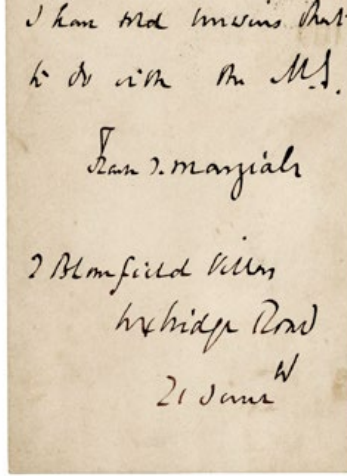 I have told Unwins that
to do with the M.S.
Frank T. Marzials
7 Blomfield Villas
Uxbridge Road
W
21 June